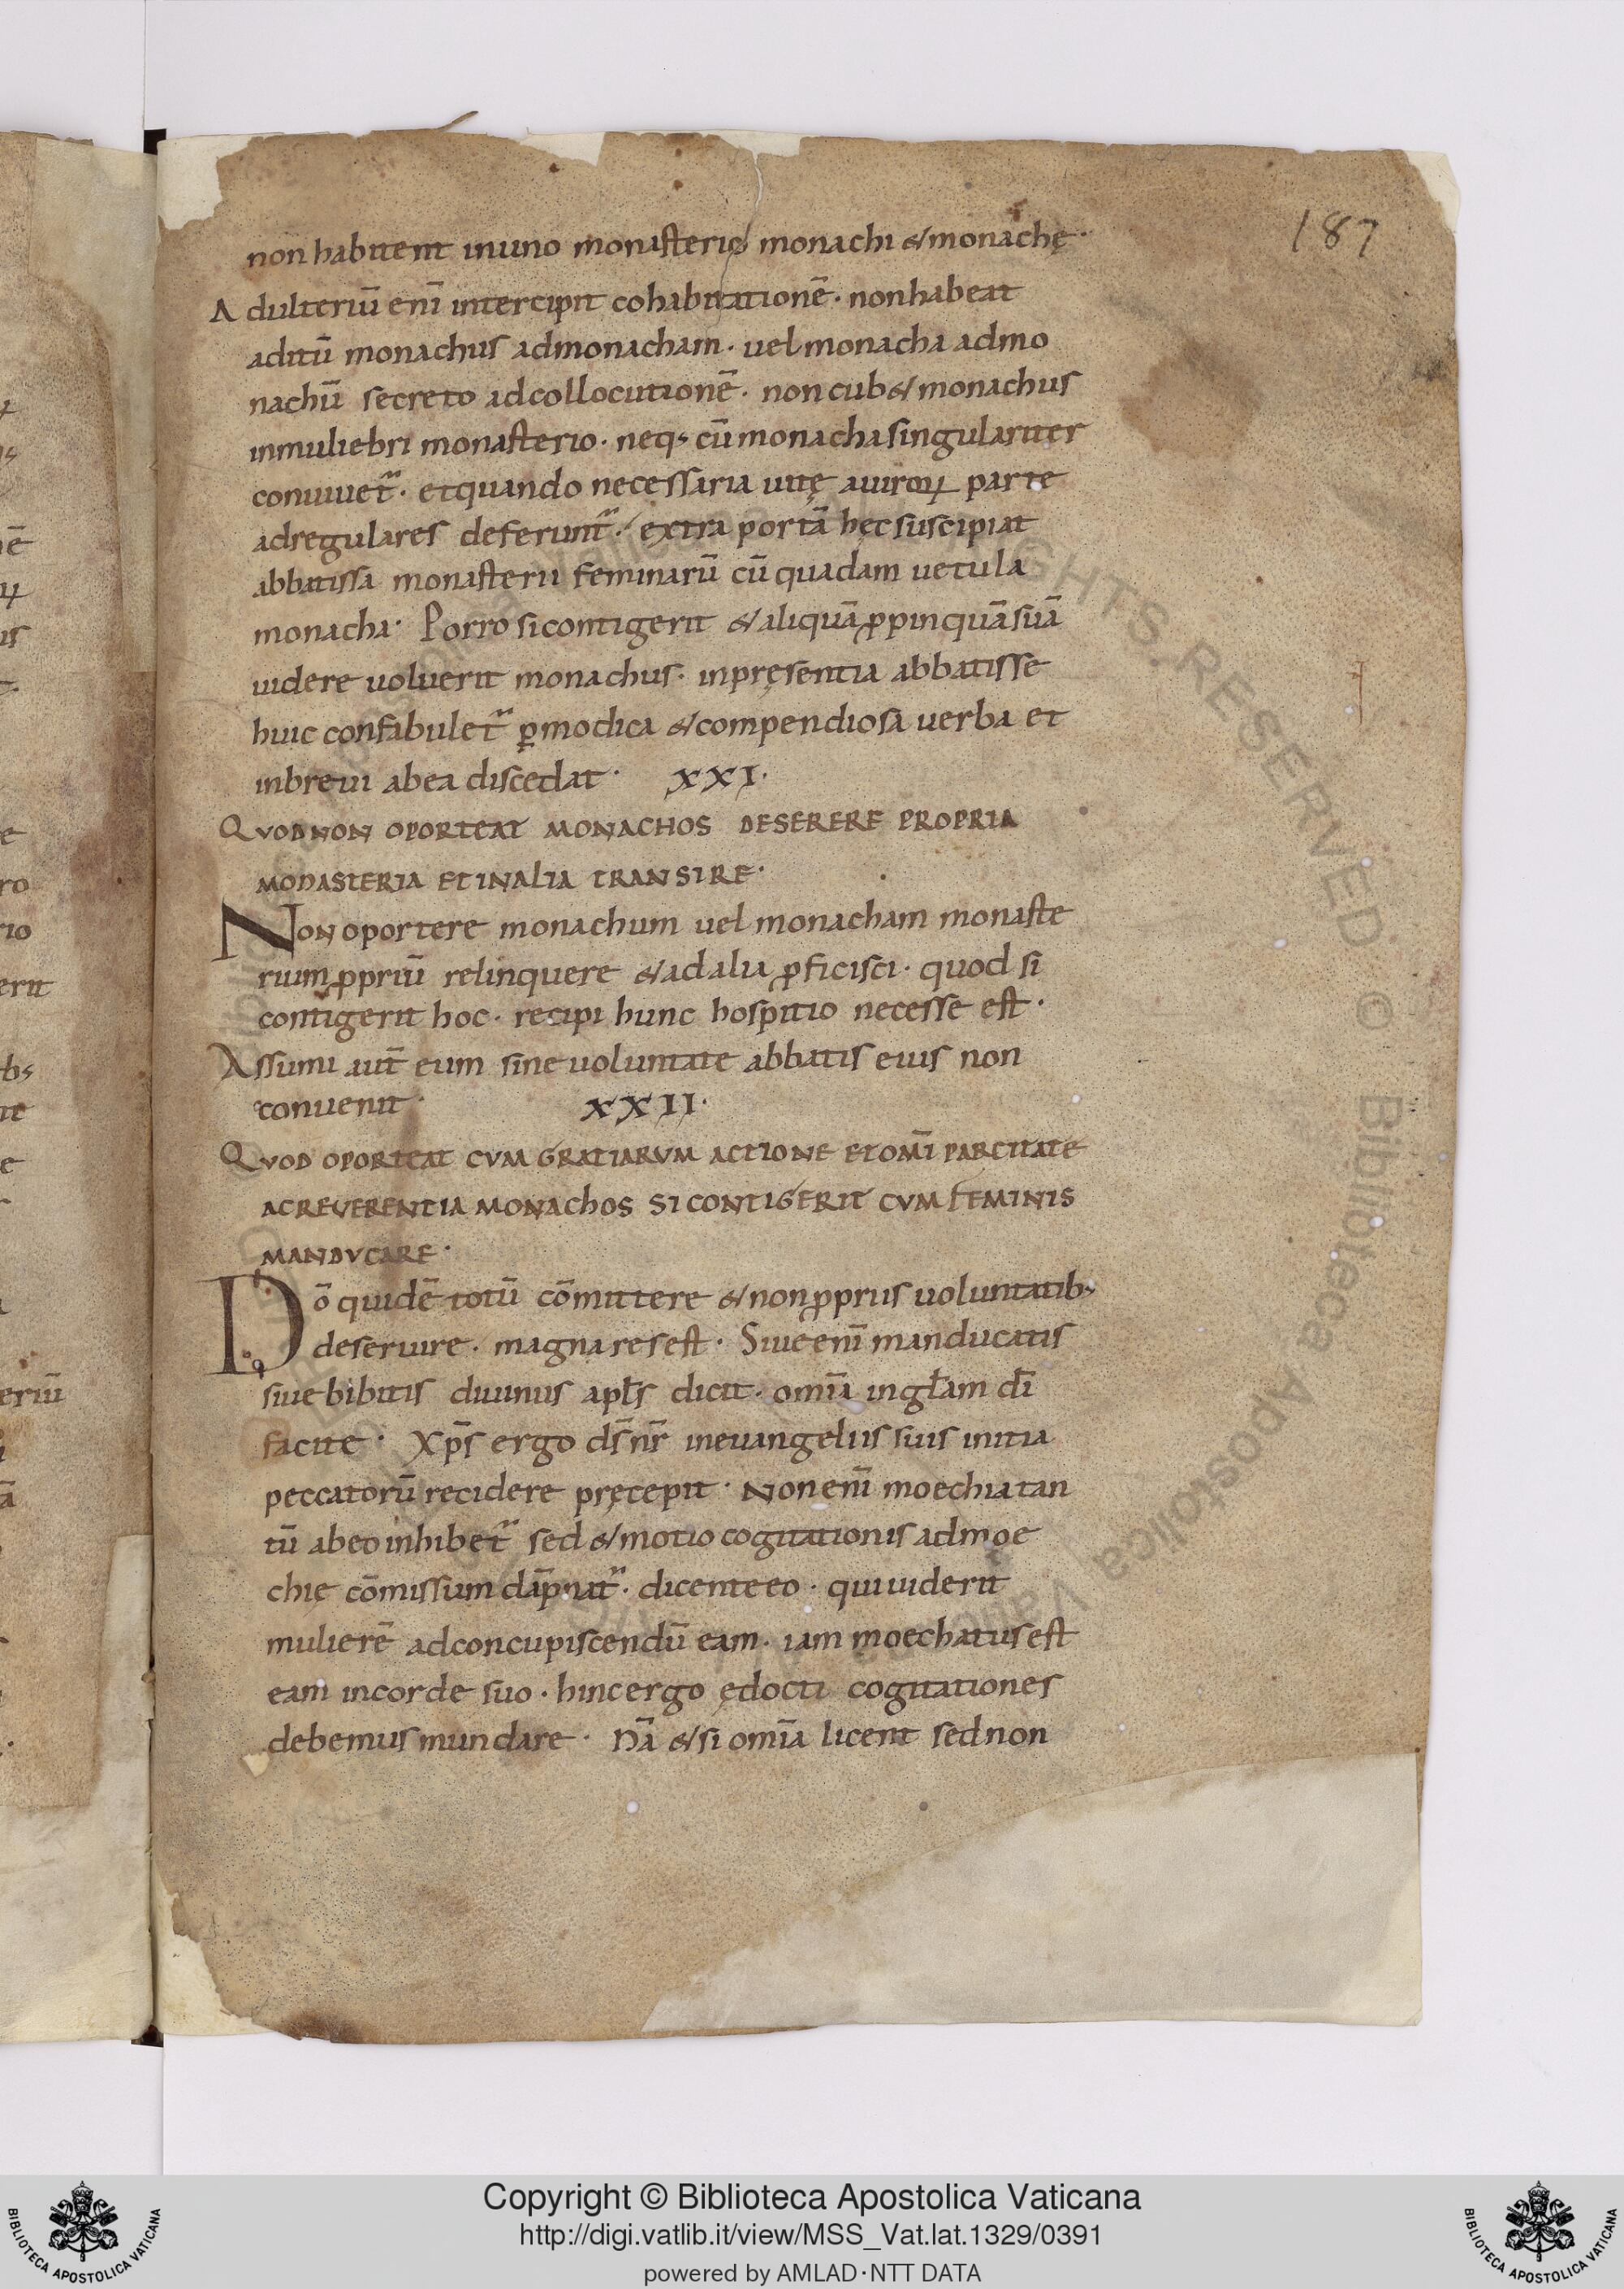 187
non habitent in uno monasterio monachi & monachę·
Adulteriū enī intercipit cohabitationē· non habeat
aditū monachus ad monacham· uel monacha ad mo
nachū secreto ad collocutionē· non cub& monachus
in muliebri monasterio· neq; cū monacha singulariter
conuiuet᷑· et quando necessaria uitę a uiroꝝ parte
ad regulares deferunt᷑· extra portā hęc suscipiat
abbatissa monasterii feminarū cū quadam uetula
monacha· Porro si contigerit & aliquā ꝓpinquā suā
uidere uoluerit monachus· in pręsentia abbatisse
huic confabulet᷑ ꝑ modica & compendiosa uerba et
in breui ab ea discedat· XXI·
QVOD NON OPORTEAT MONACHOS DESERERE PROPRIA
MONASTERIA ET IN ALIA TRANSIRE·
Non oportere monachum uel monacham monaste
rium ꝓpriū relinquere & ad alia ꝓficisci· quod si
contigerit hoc· recipi hunc hospitio necesse est·
Assumi aut̄ eum sine uoluntate abbatis eius non
conuenit· XXII·
QVOD OPORTEAT CVM GRATIARVM ACTIONE ET OMĪ PARCITATE
AC REVERENTIA MONACHOS SI CONTIGERIT CVM FEMINIS
MANDVCARE·
Dō quidē totū cōmittere & non ꝓpriis uoluntatib;
deseruire· magna res est· Siue enī manducatis
siue bibitis diuinus apl̄s dicit· omīa in gl̄am dī
facite· Xp̄s ergo dn̄s nr̄ in euangeliis suis initia
peccatorū recidere pręcepit· Non enī moechia tan
tū ab eo inhibet᷑ sed & motio cogitationis ad moe
chię cōmissum dāpnat᷑· dicente eo· qui uiderit
mulierē ad concupiscendū eam· iam moechatus est
eam in corde suo· hinc ergo ędocti cogitationes
debemus mundare· Nā & si omīa licent sed non
Copyright © Biblioteca Apostolica Vaticana
http://digi.vatlib.it/view/MSS_Vat.lat.1329/0391
powered by AMLAD·NTT DATA